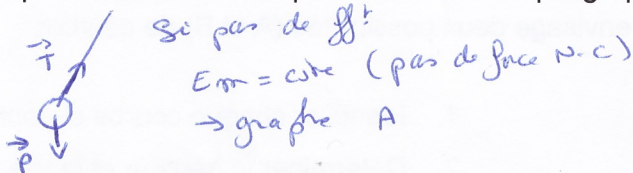 Si pas de ff^t
Em = cste (pas de force N-C)
→ graphe A
T
P